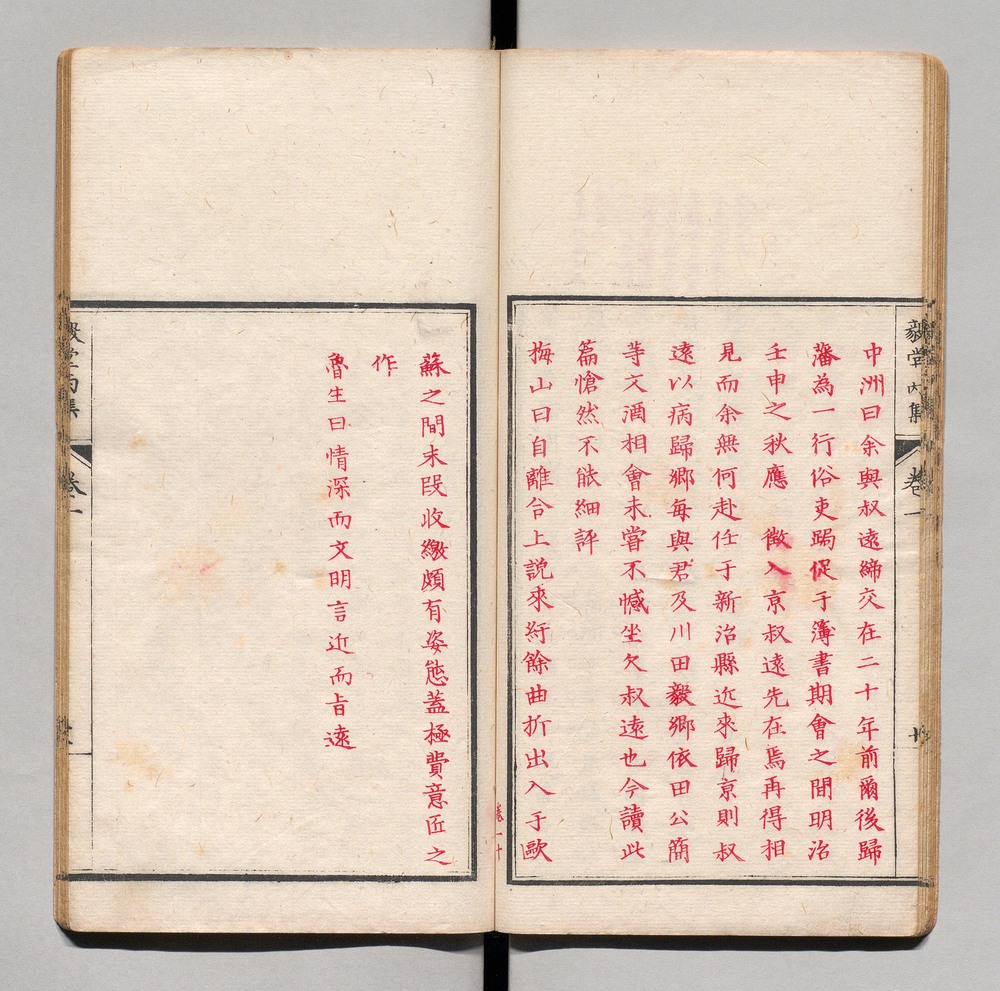 中洲曰余與叔遠締交在二十年前爾後歸
藩為一行俗吏跼促于簿書期會之間明治
壬申之秋應　徵入京叔遠先在焉再得相
見而余無何赴任于新治縣近來歸京則叔
遠以病歸鄉每與君及川田毅卿依田公簡
等文酒相會未嘗不憾坐欠叔遠也今讀此
篇愴然不能細評
梅山曰自離合上說來紆餘曲折出入于歐
蘇之間末段收繳頗有姿態蓋極費意匠之
作
魯生曰情深而文明言近而旨遠
毅堂丙集
卷一
卷一十
毅堂丙集
卷一